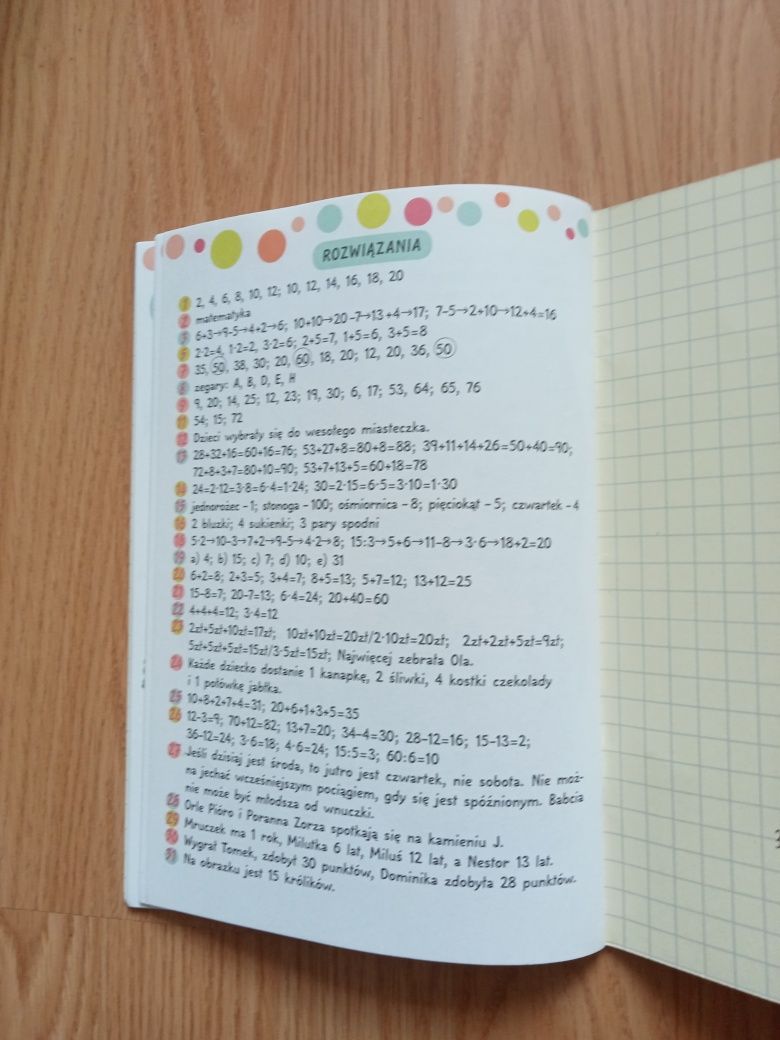 ROZWIĄZANIA
1 2, 4, 6, 8, 10, 12; 10, 12, 14, 16, 18, 20
2 matematyka
3 6+3→9-5→4+2→6; 10+10→20-7→13+4→17; 7-5→2+10→12+4=16
6 2·2=4, 1·2=2, 3·2=6; 2+5=7, 1+5=6, 3+5=8
7 35, 50, 38, 30; 20, 60, 18, 20; 12, 20, 36, 50
8 zegary: A, B, D, E, H
9 9, 20; 14, 25; 12, 23; 19, 30; 6, 17; 53, 64; 65, 76
11 54; 15; 72
12 Dzieci wybrały się do wesołego miasteczka.
13 28+32+16=60+16=76; 53+27+8=80+8=88; 39+11+14+26=50+40=90;
72+8+3+7=80+10=90; 53+7+13+5=60+18=78
14 24=2·12=3·8=6·4=1·24; 30=2·15=6·5=3·10=1·30
15 jednorożec - 1; stonoga - 100; ośmiornica - 8; pięciokąt - 5; czwartek - 4
16 2 bluzki; 4 sukienki; 3 pary spodni
18 5·2→10-3→7+2→9-5→4·2→8; 15:3→5+6→11-8→3·6→18+2=20
19 a) 4; b) 15; c) 7; d) 10; e) 31
20 6+2=8; 2+3=5; 3+4=7; 8+5=13; 5+7=12; 13+12=25
21 15-8=7; 20-7=13; 6·4=24; 20+40=60
22 4+4+4=12; 3·4=12
23 2zł+5zł+10zł=17zł; 10zł+10zł=20zł/2·10zł=20zł; 2zł+2zł+5zł=9zł;
5zł+5zł+5zł=15zł/3·5zł=15zł; Najwięcej zebrała Ola.
24 Każde dziecko dostanie 1 kanapkę, 2 śliwki, 4 kostki czekolady
i 1 połówkę jabłka.
25 10+8+2+7+4=31; 20+6+1+3+5=35
26 12-3=9; 70+12=82; 13+7=20; 34-4=30; 28-12=16; 15-13=2;
36-12=24; 3·6=18; 4·6=24; 15:5=3; 60:6=10
27 Jeśli dzisiaj jest środa, to jutro jest czwartek, nie sobota. Nie moż-
na jechać wcześniejszym pociągiem, gdy się jest spóźnionym. Babcia
nie może być młodsza od wnuczki.
28 Orle Pióro i Poranna Zorza spotkają się na kamieniu J.
29 Mruczek ma 1 rok, Milutka 6 lat, Miluś 12 lat, a Nestor 13 lat.
30 Wygrał Tomek, zdobył 30 punktów, Dominika zdobyła 28 punktów.
31 Na obrazku jest 15 królików.